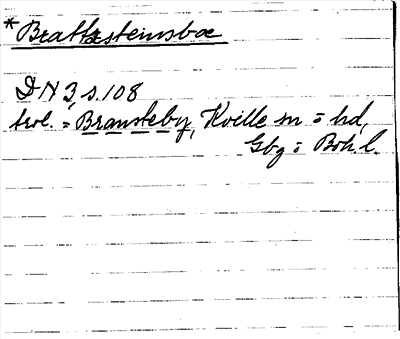 *Brattæsteinsbœ
DN 3, s. 108
trol. = Bramsteby, Kville sn = hd,
Gbg = Boh. l.